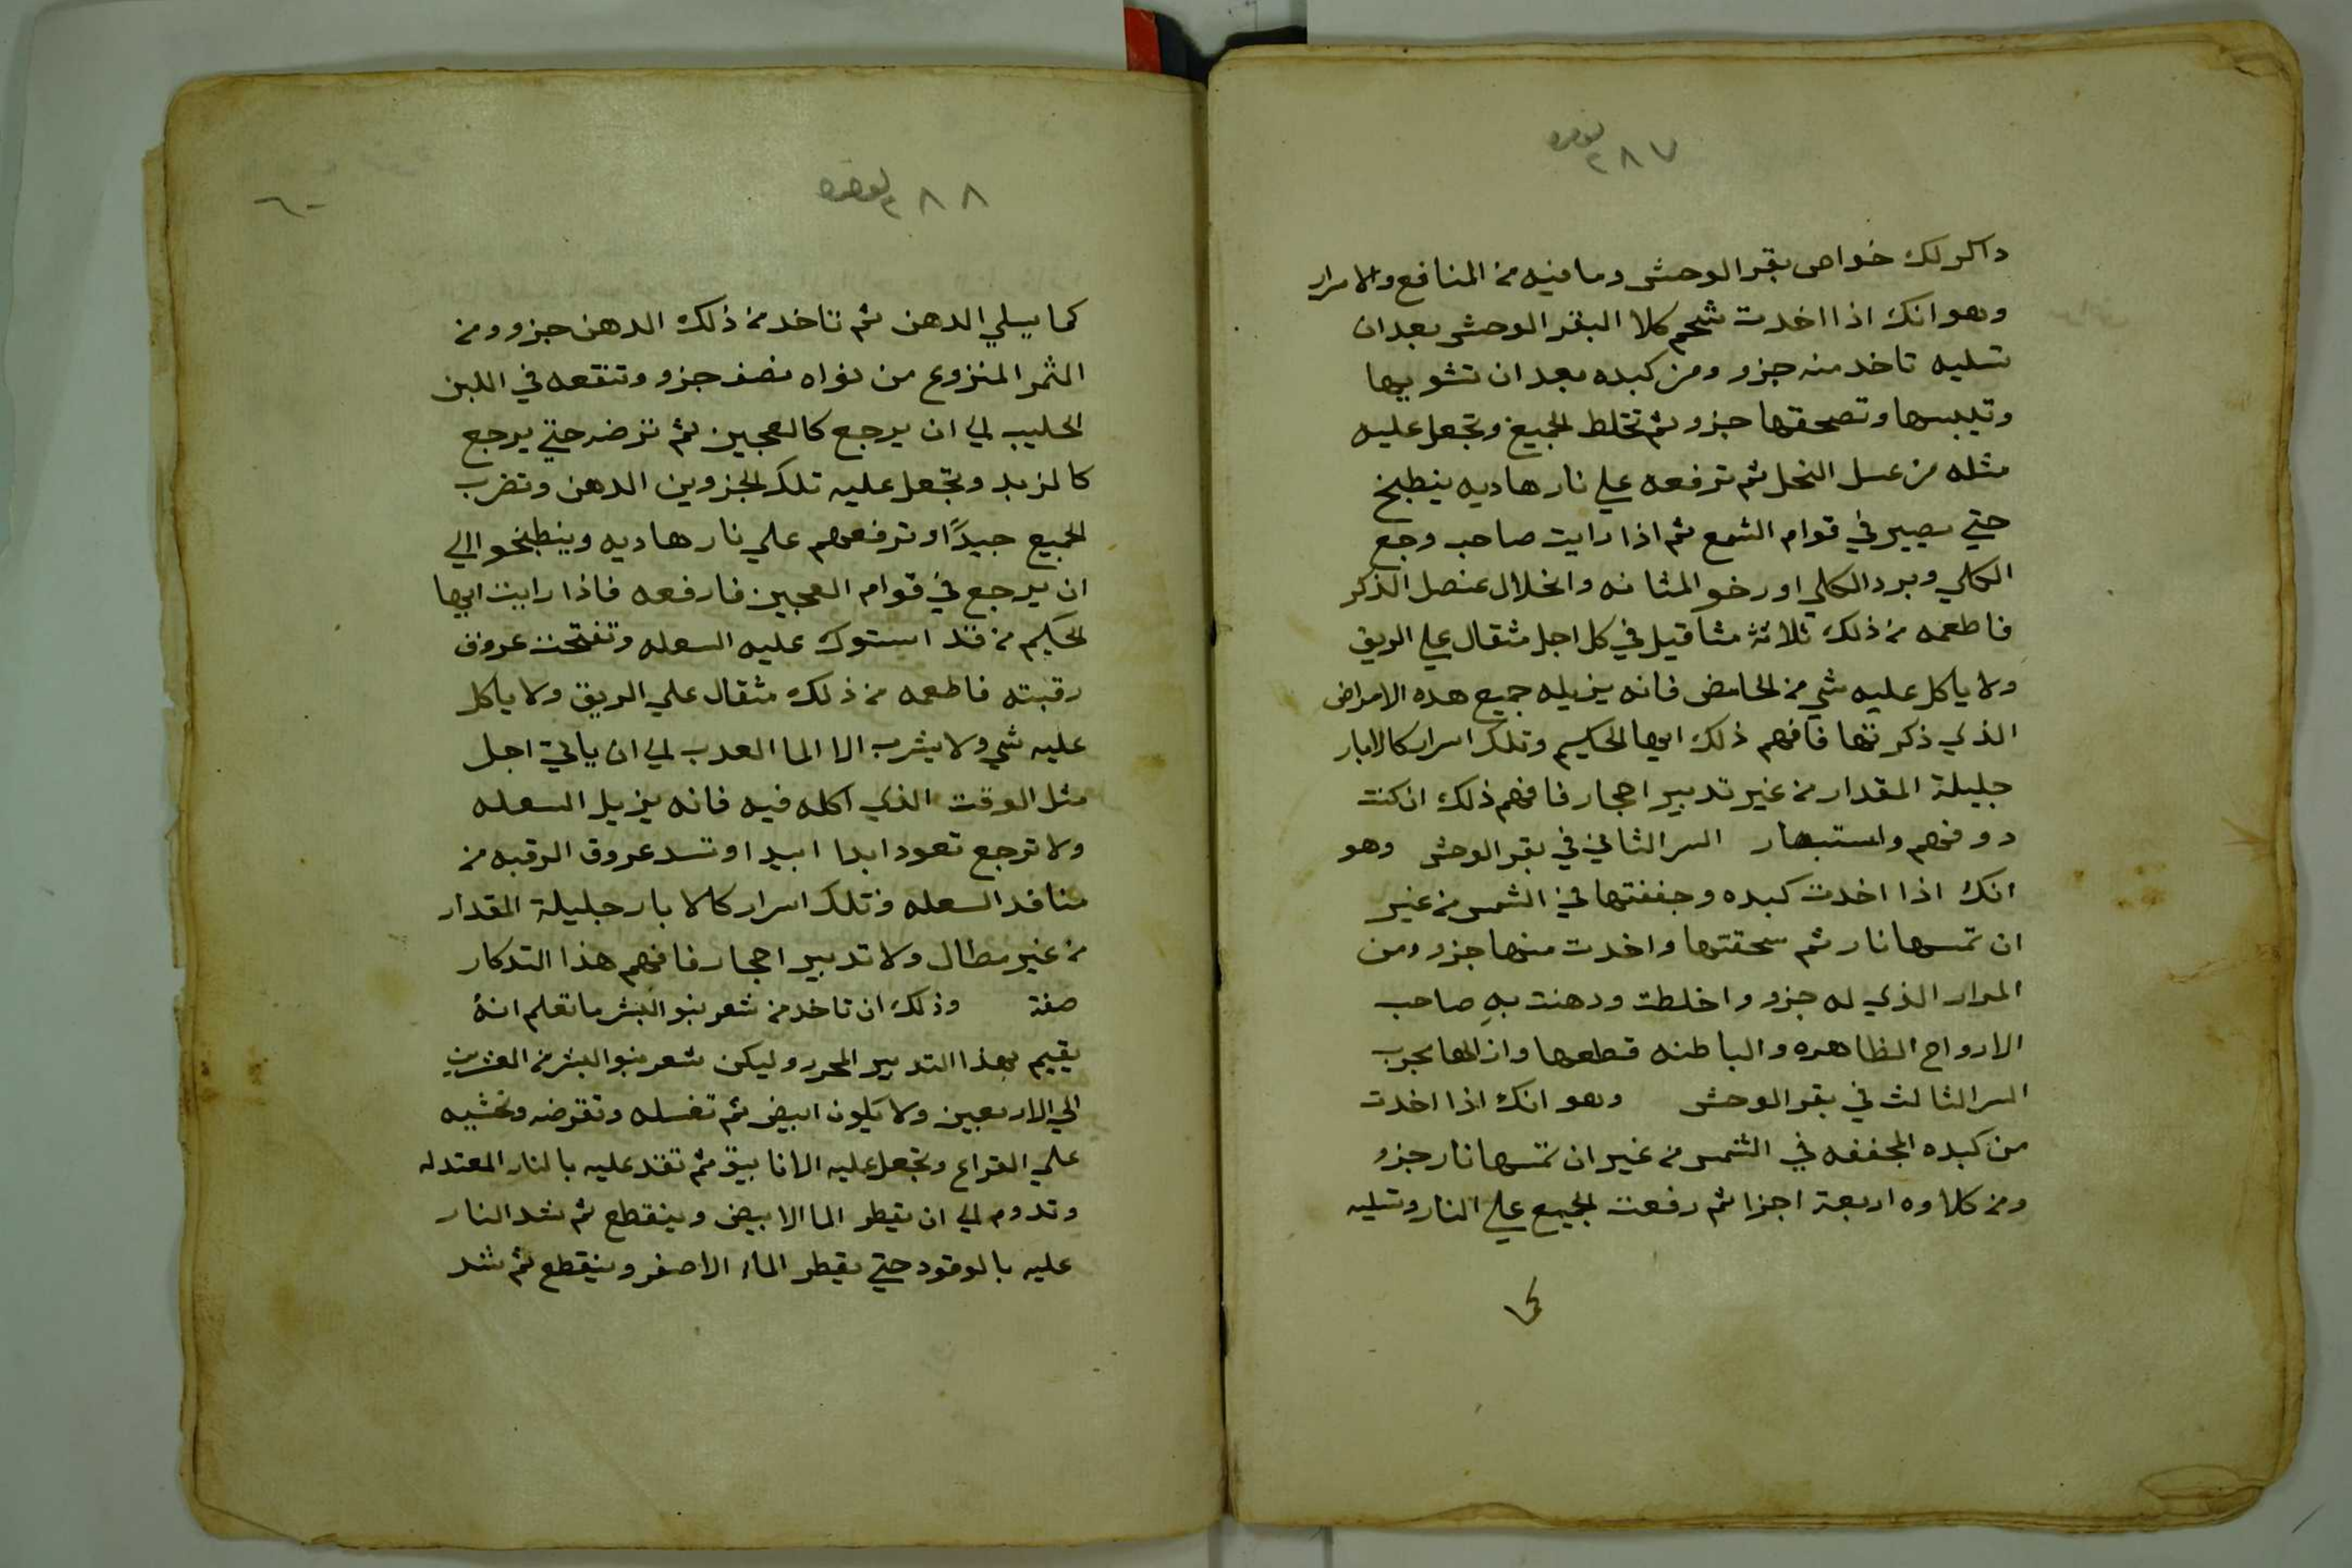 ٢٨٧
داكر لك خواص بقر الوحش وما فيه من المنافع والامرار
وهو انك اذا اخدت شحم كلا البقر الوحش بعد ان
تسليه تاخد منه جزو ومن كبده بعد ان تشويها
وتيبسها وتصحقها جزو ثم تخلط الجميع وتجعل عليه
مثله من عسل النحل ثم ترفعه علي نار هاديه ينطبخ
حتي يصير في قوام الشمع ثم اذا رايت صاحب وجع
الكلي وبرد الكلي او رخو المثانه وانخلال عنصل الذكر
فاطعمه من ذلك ثلاثة مثاقيل في كل اجل مثقال علي الريق
ولا ياكل عليه شي من الحامض فانه يزيله جميع هده الامراض
الذي ذكرتها فافهم ذلك ايها الحكيم وتلك اسرار كالابار
جليلة المقدار من غير تدبير احجار فافهم ذلك ان كنت
دو فهم واستبصار السر الثاني في بقر الوحش وهو
انك اذا اخدت كبده وجففتها في الشمس من غير
ان تمسها نار ثم سحقتها واخدت منها جزو ومن
المرار الذي له جزو واخلطت ودهنت به صاحب
الارواح الظاهره والباطنه قطعها وازالها مجرب
السر الثالث في بقر الوحش وهو انك اذا اخدت
من كبده المجففه في الشمس من غير ان تمسها نار جزو
ومن كلاوه اربعة اجزا ثم رفعت الجميع علي النار وتسليه
كما
٢٨٨
٦٠
كما يسلي الدهن ثم تاخد من ذلك الدهن جزو ومن
الثمر المنزوع من نواه نصف جزو وتنقعه في اللبن
الحليب الي ان يرجع كالعجين ثم ترضه حتي يرجع
كالزبد وتجعل عليه تلك الجزوين الدهن وتضرب
الجميع جيدًا وترفعهم علي نار هاديه وينطبخوا الي
ان يرجع في قوام العجين فارفعه فاذا رايت ايها
الحكيم من قد استوك عليه السعله وتفتحت عروق
رقبته فاطعمه من ذلك مثقال علي الريق ولا ياكل
عليه شي ولا يشرب الا الما العدب الي ان ياتي اجل
مثل الوقت الذي اكله فيه فانه يزيل السعله
ولا ترجع تعود ابدا ابيدا وتسد عروق الرقبه من
منافد السعله وتلك اسرار كالابار جليلة المقدار
من غير مطال ولا تدبير احجار فافهم هذا التدكار
صفة وذلك ان تاخد من شعر بنو البشر ما تعلم انهُ
يقيم بهذا التدبير المحرر وليكن شعر بنو البشر من العشرين
الي الاربعين ولا يكون ابيض ثم تغسله وتقرضه وتحشيه
علي القراع وتجعل عليه الانابيق ثم تقد عليه بالنار المعتدله
وتدوم الي ان يقطر الما الابيض وينقطع ثم تشد النار
عليه بالوقود حتي يقطر الماء الاصفر وينقطع ثم تشد